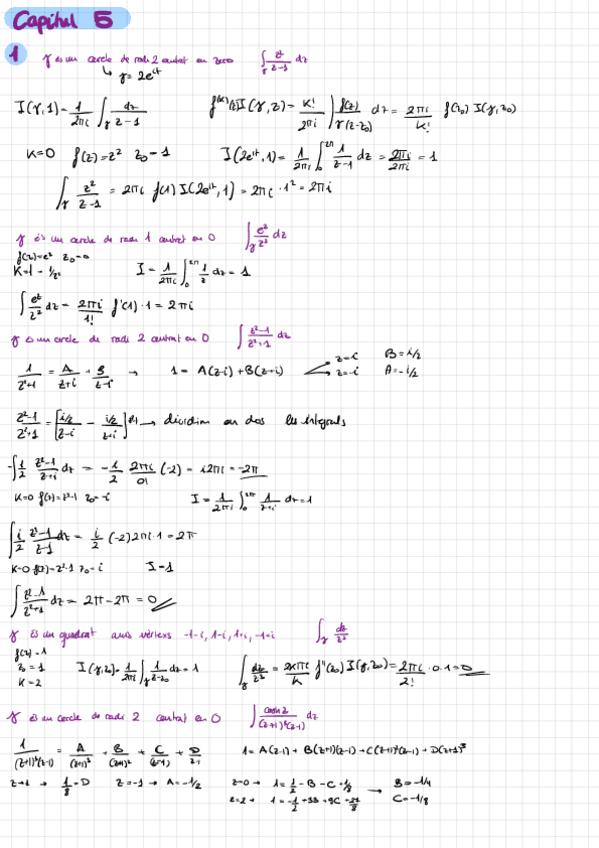 Capítul 5
1 γ és un cercle de radi 2 centrat en zero ∫γ z²/(z-1) dz
↳ γ = 2e^it
I(γ,1) = 1/2πi ∫γ dz/(z-1) f^(k)(z)I(γ,z) = k!/2πi ∫γ f(z)/(z-z₀) dz = 2πi/k! f(z₀) I(γ,z₀)
K=0 f(z)=z² z₀=1 I(2e^it,1) = 1/2πi ∫₀^2π 1/(z-1) dz = 2πi/2πi = 1
∫γ z²/(z-1) = 2πi f(1) I(2e^it,1) = 2πi · 1² = 2πi
γ és un cercle de radi 1 centrat en 0 ∫γ e^z/z² dz
f(z)=e^z z₀=0
K=1 I = 1/2πi ∫₀^2π 1/z dz = 1
∫ e^z/z² dz = 2πi/1! f'(1) · 1 = 2πi
γ és un cercle de radi 2 centrat en 0 ∫γ (z²-1)/(z²+1) dz
1/(z²+1) = A/(z+i) + B/(z-i) → 1 = A(z-i) + B(z+i) z=i z=-i B=i/2 A=-i/2
(z²-1)/(z²+1) = [(i/2)/(z-i) - (i/2)/(z+i)] → dividim en dos les integrals
-∫ i/2 (z²-1)/(z+i) dz = -i/2 2πi/0! (-2) = i2πi = -2π
K=0 f(z)=z²-1 z₀=-i I = 1/2πi ∫₀^2π 1/(z+i) dz = 1
∫ i/2 (z²-1)/(z-1) dz = i/2 (-2)2πi·1 = 2π
K=0 f(z)=z²-1 z₀=i I=1
∫ (z²-1)/(z²+1) dz = 2π-2π = 0
γ és un quadrat amb vèrtexs -1-i, 1-i, 1+i, -1+i ∫γ dz/z²
f(z)=1
z₀=1 I(γ,z₀) = 1/2πi ∫γ 1/(z-z₀) dz = 1 ∫γ dz/z² = 2πi/k f''(z₀) I(γ,z₀) = 2πi/2! · 0·1 = 0
K=2
γ és un cercle de radi 2 centrat en 0 ∫γ cosh z/((z+1)³(z-1)) dz
1/((z+1)³(z-1)) = A/(z+1)³ + B/(z+1)² + C/(z+1) + D/(z-1) 1 = A(z-1) + B(z+1)(z-1) + C(z+1)²(z-1) + D(z+1)³
z=1 → 1/8 = D z=-1 → A=-1/2 z=0 → 1 = 1/2 - B - C + 1/8 → B=-1/4
z=2 → 1 = -1/2 + 3B + 9C + 27/8 C=-1/8